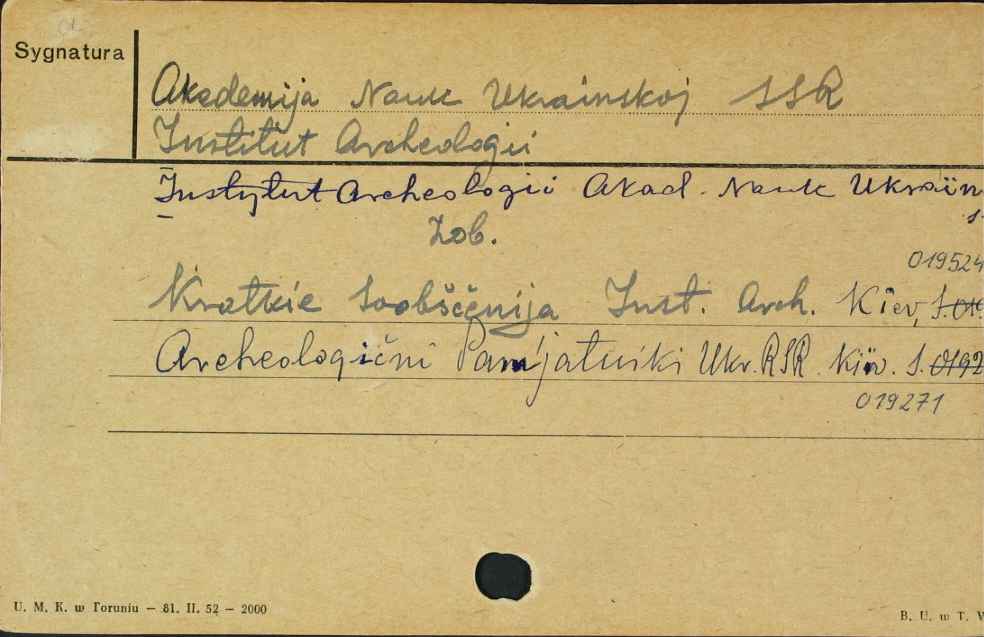 Sygnatura
Akademija Nauk Ukrainskoj SSR
Institut Archeologii
Instytut Archeologii Akad. Nauk Ukraïn
s
Zob.
019524
Kratkie Soobščenija Inst. Arch. Kiev, S.
Archeologični Pam'jatniki Ukr. RSR. Kiïv. S. 0192
019271
U. M. K. w Toruniu — 81. II. 52 — 2000
B. U. w T.